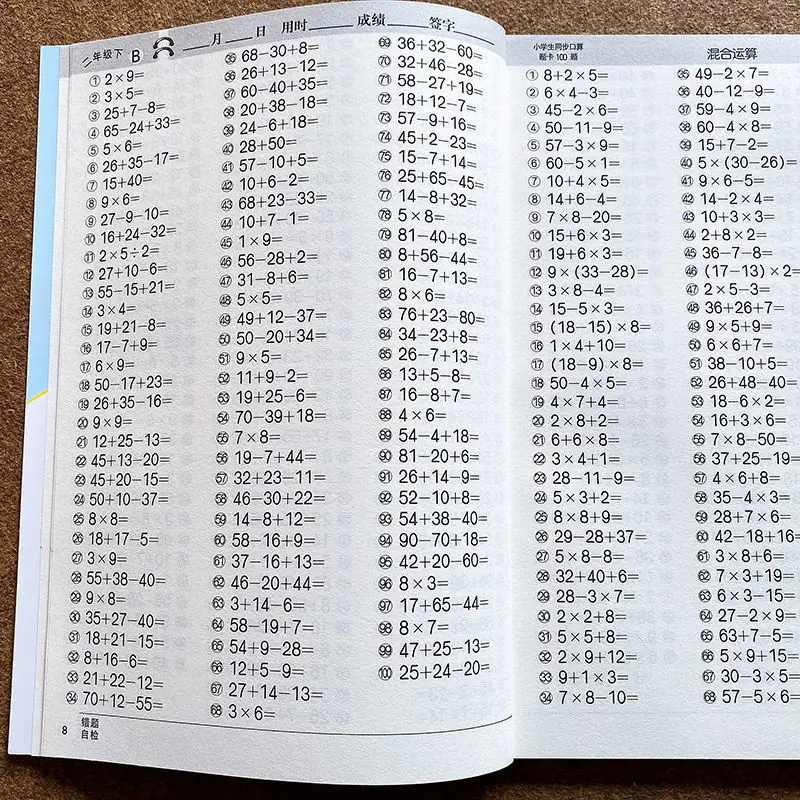 二年级下 B 月 日 用时 成绩 签字
① 2×9=
② 3×5=
③ 25+7-8=
④ 65-24+33=
⑤ 5×6=
⑥ 26+35-17=
⑦ 15+40=
⑧ 9×6=
⑨ 27-9-10=
⑩ 16+24-32=
⑪ 2×5÷2=
⑫ 27+10-6=
⑬ 55-15+21=
⑭ 3×4=
⑮ 19+21-8=
⑯ 17-7+9=
⑰ 6×9=
⑱ 50-17+23=
⑲ 26+35-16=
⑳ 9×9=
㉑ 12+25-13=
㉒ 45+13-20=
㉓ 45+20-15=
㉔ 50+10-37=
㉕ 8×8=
㉖ 18+17-5=
㉗ 3×9=
㉘ 55+38-40=
㉙ 9×8=
㉚ 35+27-40=
㉛ 18+21-15=
㉜ 8+16-6=
㉝ 21+22-12=
㉞ 70+12-55=
㉟ 68-30+8=
㊱ 26+13-12=
㊲ 60-40+35=
㊳ 20+38-18=
㊴ 24-6+18=
㊵ 28+50=
㊶ 57-10+5=
㊷ 10+6-2=
㊸ 68+23-33=
㊹ 10+7-1=
㊺ 1×9=
㊻ 56-28+2=
㊼ 31-8+6=
㊽ 5×5=
㊾ 49+12-37=
㊿ 50-20+34=
51 9×5=
52 11+9-2=
53 19+25-6=
54 70-39+18=
55 7×8=
56 19-7+44=
57 32+23-11=
58 46-30+22=
59 14-8+12=
60 58-16+9=
61 37-16+13=
62 46-20+44=
63 3+14-6=
64 58-19+7=
65 54+9-28=
66 12+5-9=
67 27+14-13=
68 3×6=
69 36+32-60=
70 32+46-28=
71 58-27+19=
72 18+12-7=
73 57-9+16=
74 45+2-23=
75 15-7+14=
76 25+65-45=
77 14-8+32=
78 5×8=
79 81-40+8=
80 8+56-44=
81 16-7+13=
82 8×6=
83 76+23-80=
84 34-23+8=
85 26-7+13=
86 13+5-8=
87 16-8+7=
88 4×6=
89 54-4+18=
90 81-20+6=
91 26+14-9=
92 52-10+8=
93 54+38-40=
94 90-70+18=
95 42+20-60=
96 8×3=
97 17+65-44=
98 8×7=
99 47+25-13=
100 25+24-20=
8 错题
自检
小学生同步口算
题卡100题
混合运算
① 8+2×5=
② 6×4-3=
③ 45-2×6=
④ 50-11-9=
⑤ 57-3×9=
⑥ 60-5×1=
⑦ 10+4×5=
⑧ 14+6-4=
⑨ 7×8-20=
⑩ 15+6×3=
⑪ 19+6×3=
⑫ 9×(33-28)=
⑬ 3×8-4=
⑭ 15-5×3=
⑮ (18-15)×8=
⑯ 1×4+10=
⑰ (18-9)×8=
⑱ 50-4×5=
⑲ 4×7+4=
⑳ 2×8+2=
㉑ 6+6×8=
㉒ 3×4+1=
㉓ 28-11-9=
㉔ 5×3+2=
㉕ 8×8+9=
㉖ 29-28+37=
㉗ 5×8-8=
㉘ 32+40+6=
㉙ 28-3×7=
㉚ 2×2+8=
㉛ 5×5+8=
㉜ 2×9+12=
㉝ 9+1×3=
㉞ 7×8-10=
㉟ 49-2×7=
㊱ 40-12-9=
㊲ 59-4×9=
㊳ 60-4×8=
㊴ 15+7-2=
㊵ 5×(30-26)=
㊶ 9×6-5=
㊷ 14-2×4=
㊸ 10+3×3=
㊹ 2+8×2=
㊺ 36-7-8=
㊻ (17-13)×2=
㊼ 2×5-3=
㊽ 36+26+7=
㊾ 9×5+9=
㊿ 6×6+7=
51 38-10+5=
52 26+48-40=
53 18-6×2=
54 16+3×6=
55 7×8-50=
56 37+25-19=
57 4×6+8=
58 35-4×3=
59 28+7×6=
60 42-18+16=
61 3×8+6=
62 7×3+19=
63 6×3-15=
64 27-2×9=
65 63+7-5=
66 5×9+15=
67 30-3×5=
68 57-5×6=